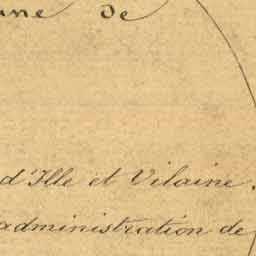 de
d'Ille et Vilaine.
administration de